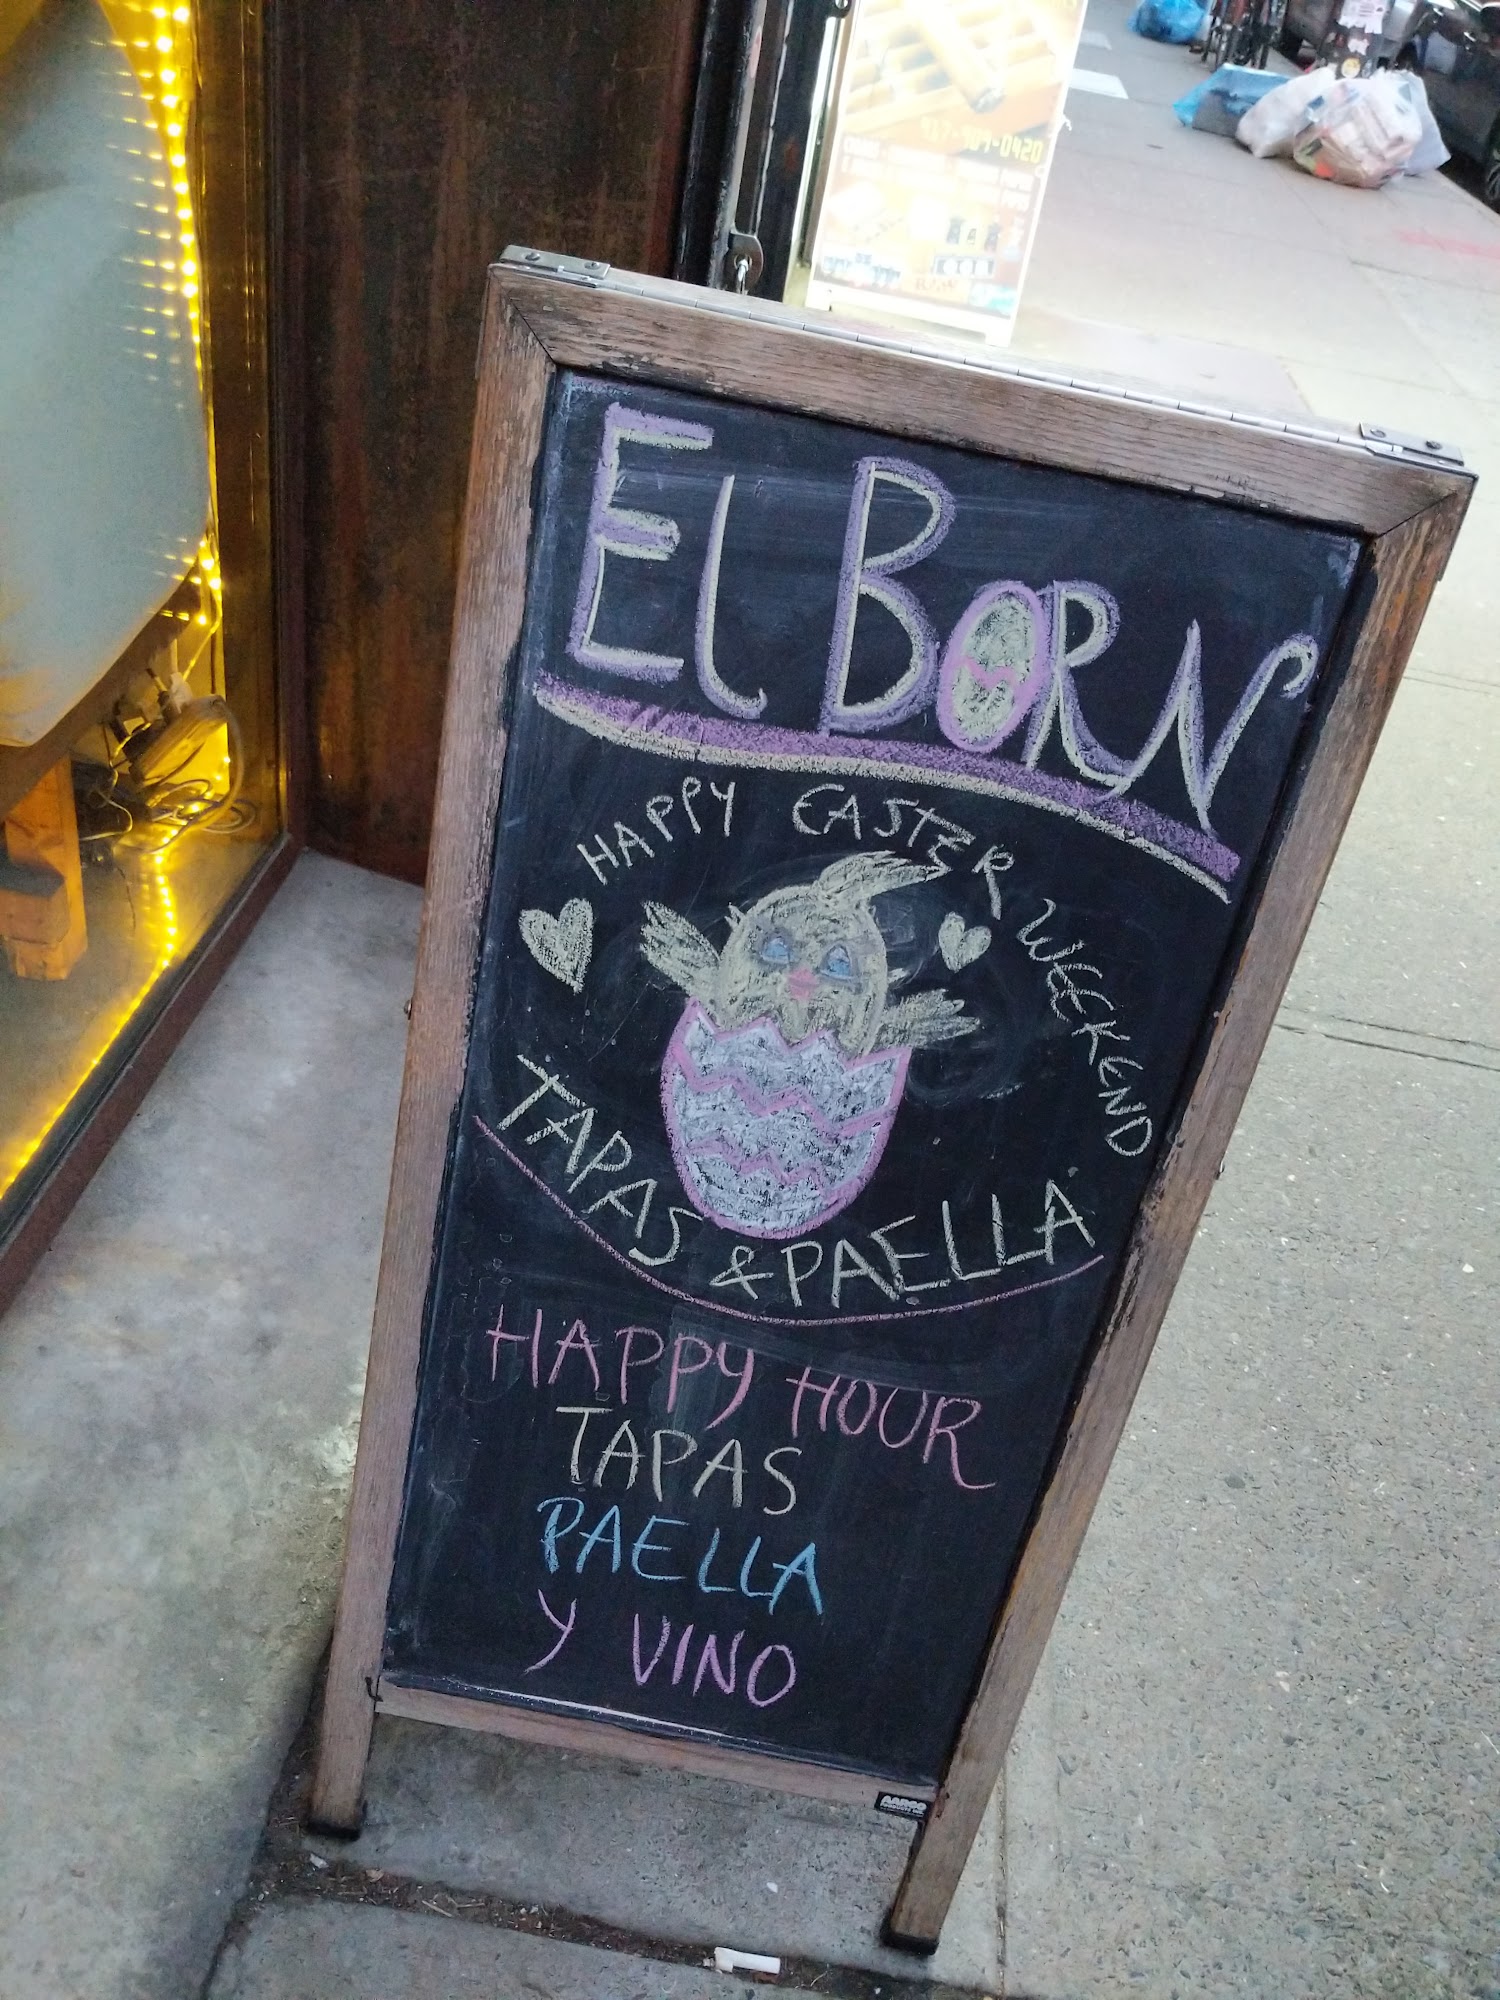 917-909-0420
El BORN
HAPPY EASTER WEEKEND
TAPAS & PAELLA
HAPPY HOUR
TAPAS
PAELLA
Y VINO
AARCO